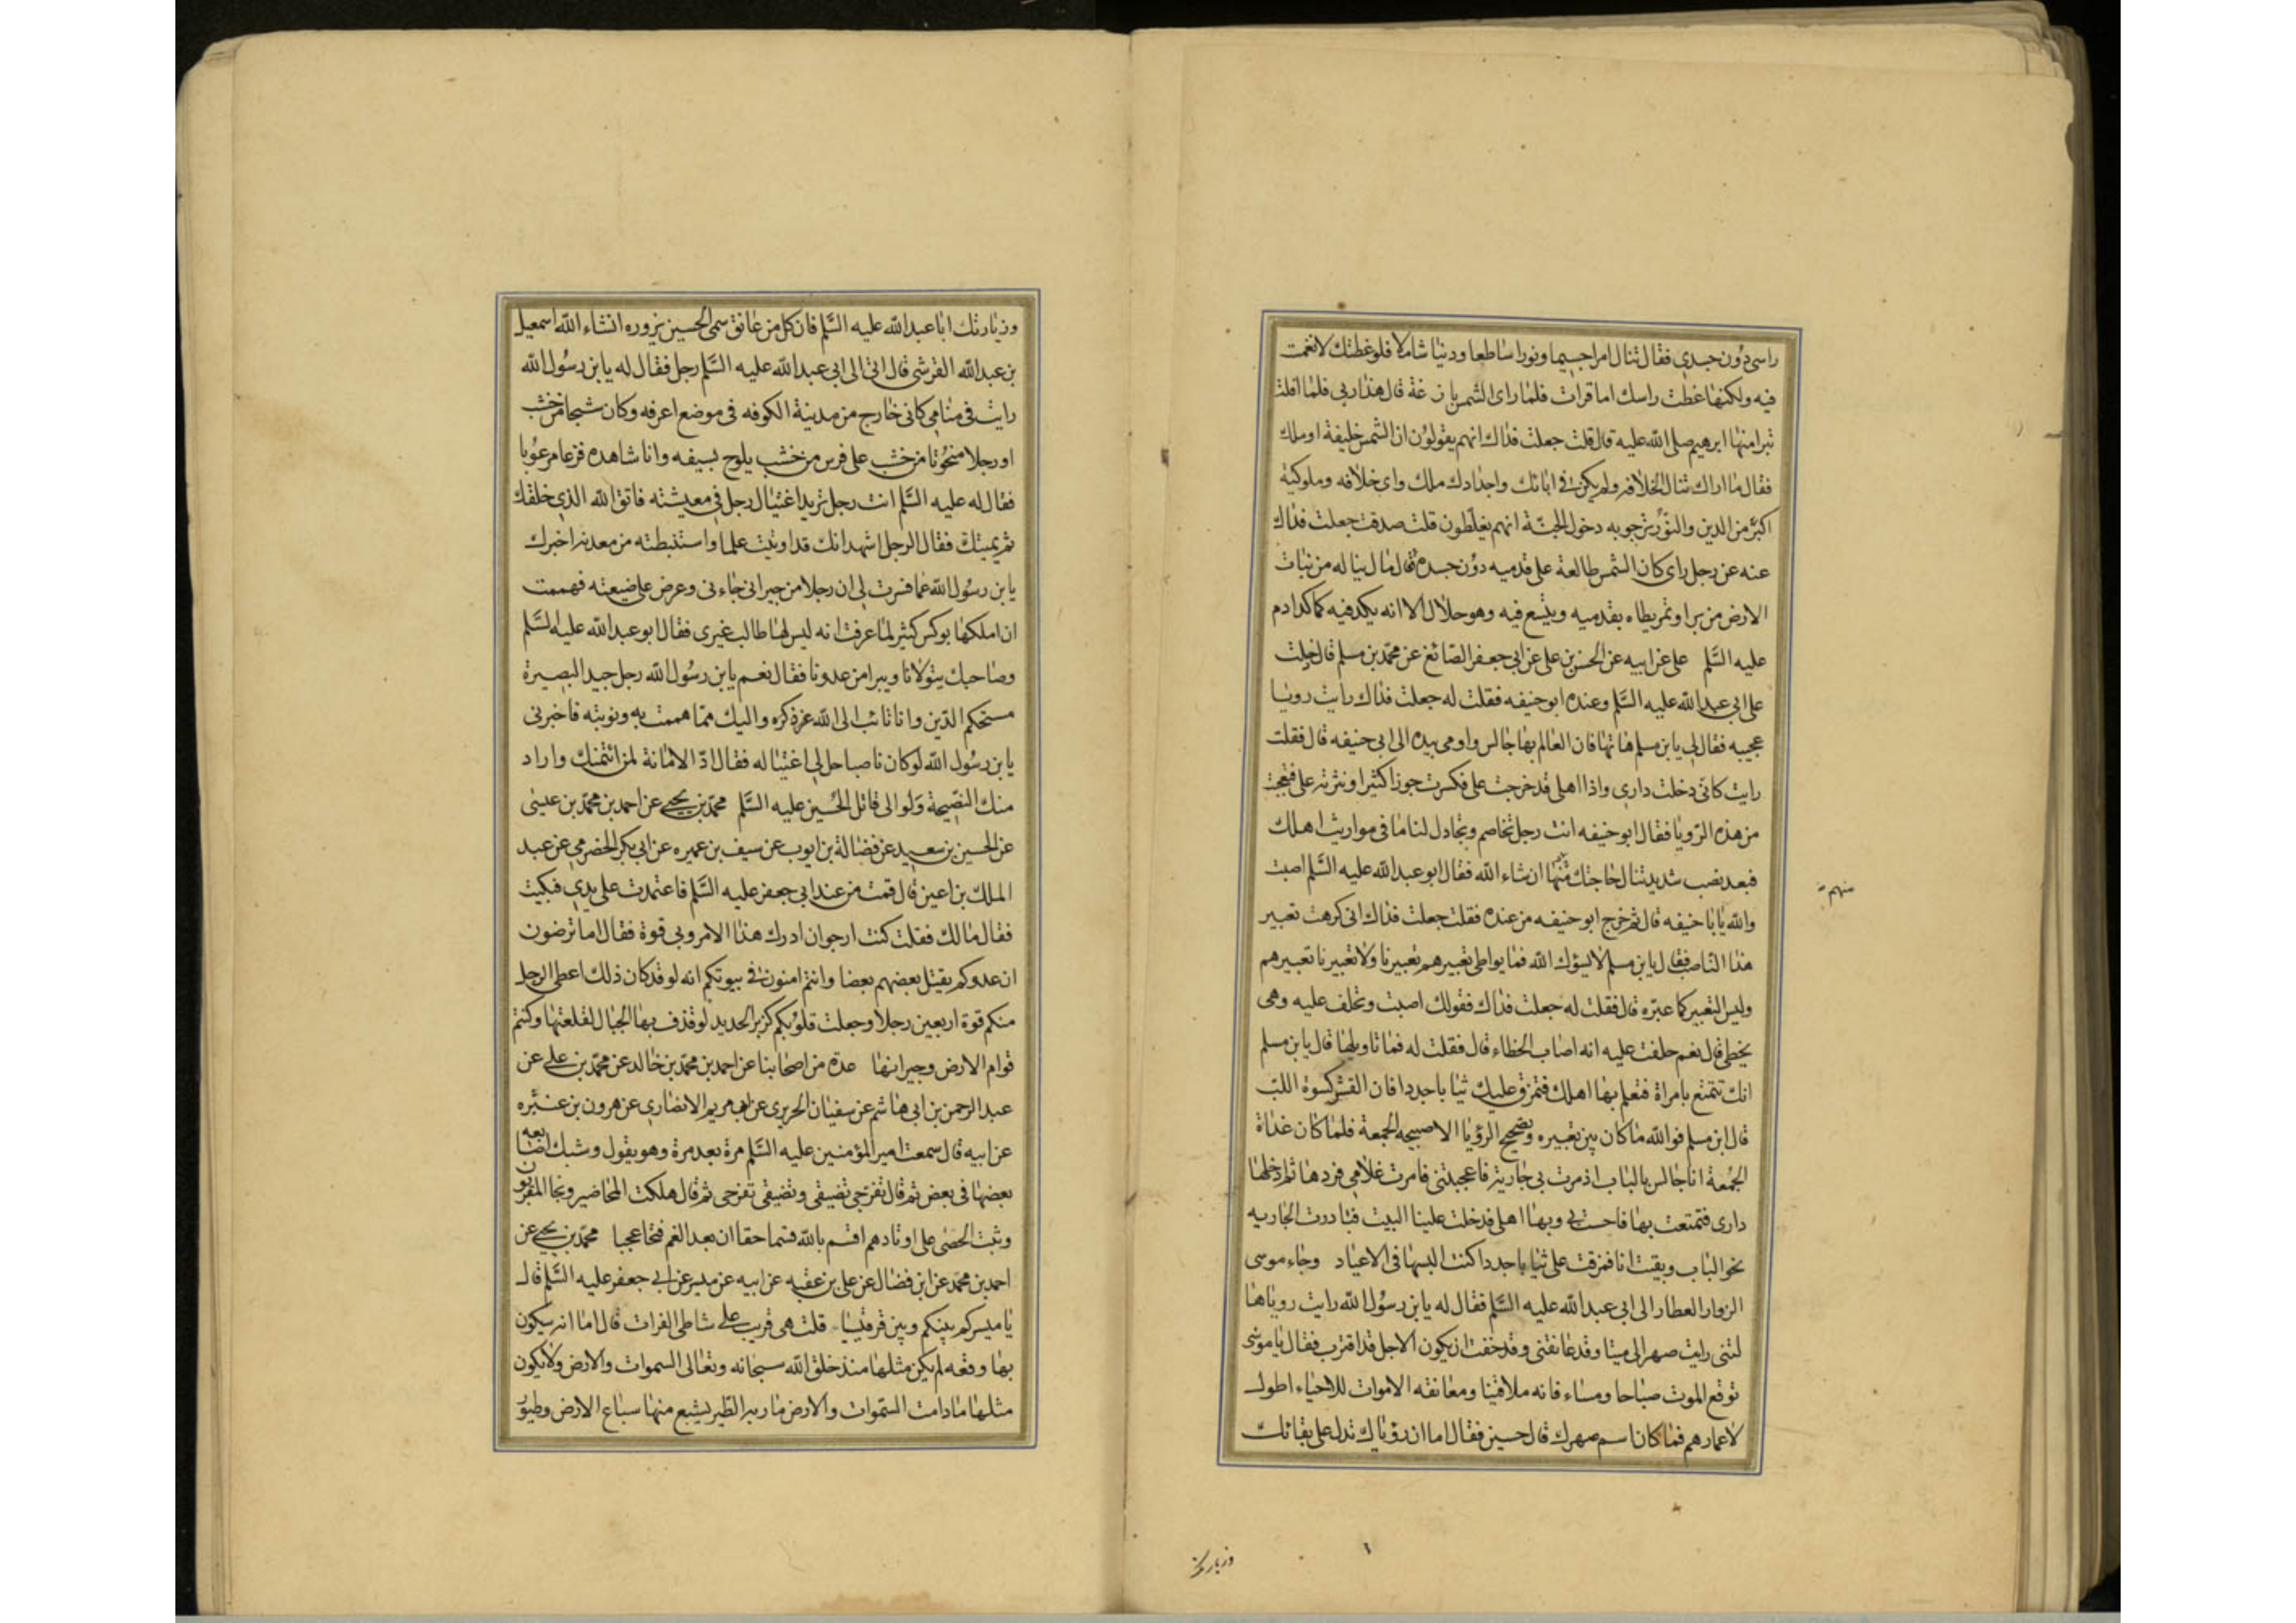 راسى دون جسدى فقال تنال امرا جسيما ونورا ساطعا ودينا شاملا فلو غطتك لانغمت
فيه ولكنها غطت راسك اما قرات فلما راى الشمس بازغة قال هذا ربى فلما افلت
تبرا منها ابرهيم صلى الله عليه قال قلت جعلت فداك انهم يقولون ان الشمس خليفة او ملك
فقال ما اراك تنال الخلافه ولم يكن فى ابائك واجدادك ملك واى خلافه وملوكية
اكبر من الدين والنور ترجو به دخول الجنة انهم يغلطون قلت صدقت جعلت فداك
عنه عن رجل راى كان الشمس طالعة على قدميه دون جسده قال مال يناله من نبات
الارض من بر او تمر يطاه بقدميه ويتسع فيه وهو حلال الا انه يكد فيه كما كد ادم
عليه السلم على عن ابيه عن الحسن بن على عن ابى جعفر الصائغ عن محمد بن مسلم قال دخلت
على ابى عبد الله عليه السلم وعنده ابو حنيفه فقلت له جعلت فداك رايت رويا
عجيبه فقال لى يابن مسلم هاتها فان العالم بها جالس واومى بيده الى ابى حنيفه قال فقلت
رايت كانى دخلت دارى واذا اهلى قد خرجت على فكسرت جوزا كثيرا ونثرته على فتعجبت
من هذه الرويا فقال ابو حنيفه انت رجل تخاصم وتجادل لناما فى مواريث اهلك
فبعد نصب شديد تنال حاجتك منها ان شاء الله فقال ابو عبد الله عليه السلم اصبت
منهم
والله يابا حنيفه قال ثم خرج ابو حنيفه من عنده فقلت جعلت فداك انى كرهت تعبير
هذا الناصب فقال يابن مسلم لا يسؤك الله فما يواطى تعبيرهم تعبيرنا ولا تعبيرنا تعبيرهم
وليس التعبير كما عبره قال فقلت له جعلت فداك فقولك اصبت وتحلف عليه وهى
يخطى قال نعم حلفت عليه انه اصاب الخطاء قال فقلت له فما تاويلها قال يابن مسلم
انك تتمتع بامراة فتعلم بها اهلك فتمزق عليك ثيابا جددا فان القشر كسوة اللب
قال ابن مسلم فوالله ما كان بين تعبيره وتصحيح الرؤيا الا صبيحه الجمعة فلما كان غداة
الجمعة انا جالس بالباب اذ مرت بى جارية فاعجبتنى فامرت غلامى فردها ثم ادخلها
دارى فتمتعت بها فاحست بى وبها اهلى فدخلت علينا البيت فبادرت الجاريه
نحو الباب وبقيت انا فمزقت على ثيابا جددا كنت البسها فى الاعياد وجاء موسى
الزوار العطار الى ابى عبد الله عليه السلم فقال له يابن رسول الله رايت رويا ها
لتنى رايت صهرا لى ميتا وقد عانقنى وقد خفت ان يكون الاجل قد اقترب فقال يا موسى
توقع الموت صباحا ومساء فانه ملاقينا ومعانقه الاموات للاحياء اطول
لاعمارهم فما كان اسم صهرك قال حسين فقال اما ان رؤياك تدل على بقائك
وزيارتك
وزيارتك ابا عبد الله عليه السلم فان كل من عانق سمى الحسين يزوره انشاء الله اسمعيل
بن عبد الله القرشى قال اتى الى ابى عبد الله عليه السلم رجل فقال له يابن رسول الله
رايت فى منامى كانى خارج من مدينة الكوفه فى موضع اعرفه وكان شبحا من خشب
او رجلا منحوتا من خشب على فرس من خشب يلوح بسيفه وانا شاهده فزعا مرعوبا
فقال له عليه السلم انت رجل تريد اغتيال رجل فى معيشته فاتق الله الذى خلقك
ثم يميتك فقال الرجل اشهد انك قد اوتيت علما واستنبطته من معدنه اخبرك
يابن رسول الله عما فسرت لى ان رجلا من جيرانى جاءنى وعرض على ضيعته فهممت
ان املكها بوكس كثير لما عرفت انه ليس لها طالب غيرى فقال ابو عبد الله عليه السلم
وصاحبك يتولانا ويبرا من عدونا فقال نعم يابن رسول الله رجل جيد البصيرة
مستحكم الدين وانا تائب الى الله عز ذكره واليك مما هممت به ونويته فاخبرنى
يابن رسول الله لو كان ناصبا حل لى اغتياله فقال اد الامانة لمن ائتمنك واراد
منك النصيحة ولو الى قاتل الحسين عليه السلم محمد بن يحيى عن احمد بن محمد بن عيسى
عن الحسين بن سعيد عن فضالة بن ايوب عن سيف بن عميره عن ابى بكر الحضرمى عن عبد
الملك بن اعين قال قمت من عند ابى جعفر عليه السلم فاعتمدت على يدى فبكيت
فقال مالك فقلت كنت ارجو ان ادرك هذا الامر وبى قوة فقال اما ترضون
ان عدوكم يقتل بعضهم بعضا وانتم امنون فى بيوتكم انه لو قد كان ذلك اعطى الرجل
منكم قوة اربعين رجلا وجعلت قلوبكم كزبر الحديد لو قذف بها الجبال لقلعتها وكنتم
قوام الارض وجيرانها عدة من اصحابنا عن احمد بن محمد بن خالد عن محمد بن على عن
عبد الرحمن بن ابى هاشم عن سفيان الحريرى عن ابى مريم الانصارى عن هرون بن عنتره
عن ابيه قال سمعت امير المؤمنين عليه السلم مرة بعد مرة وهو يقول وشبك اصابعه
بعضها فى بعض ثم قال تفرجى تضيقى وتضيقى تفرجى ثم قال هلكت المحاضير ونجا المقربون
وثبت الحصى على اوتادهم اقسم بالله قسما حقا ان بعد الغم فتحا عجبا محمد بن يحيى عن
احمد بن محمد عن ابن فضال عن على بن عقبه عن ابيه عن ميسر عن ابى جعفر عليه السلم قال
يا ميسر كم بينكم وبين قرقيسا قلت هى قريب على شاطى الفرات قال اما انه سيكون
بها وقعه لم يكن مثلها منذ خلق الله سبحانه وتعالى السموات والارض ولا يكون
مثلها ما دامت السموات والارض مادبه الطير يشبع منها سباع الارض وطيور